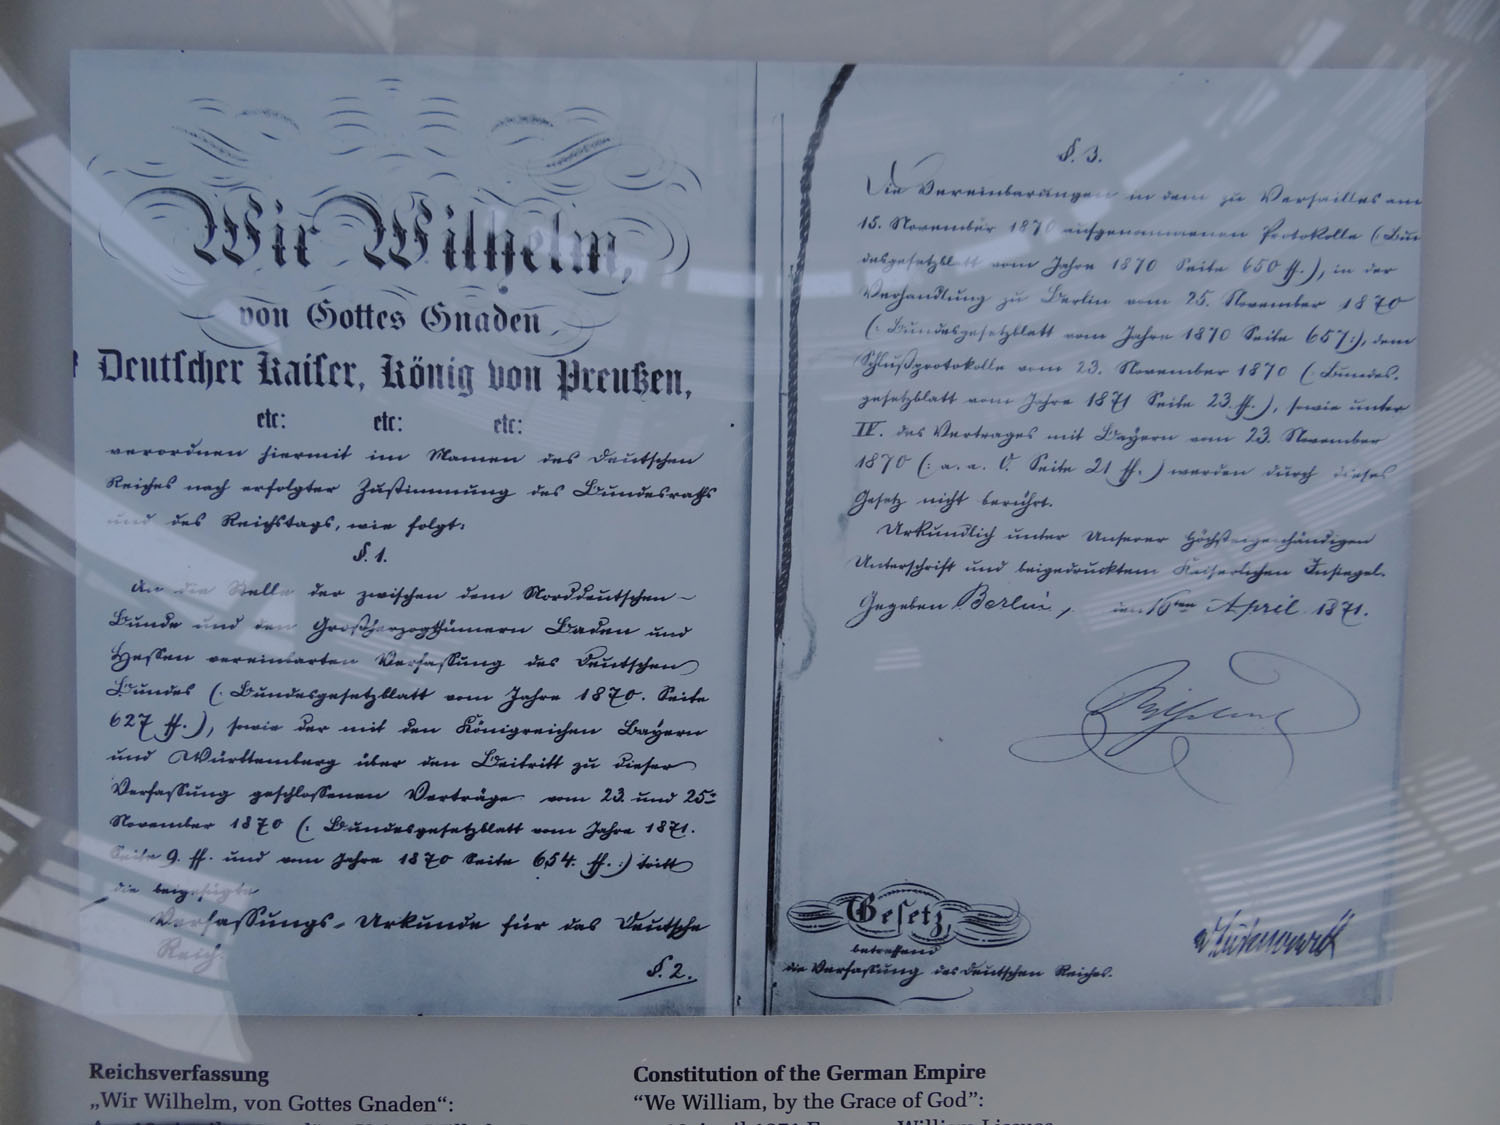 Wir Wilhelm,
von Gottes Gnaden
Deutscher Kaiser, König von Preußen,
etc: etc: etc:
verordnen hiermit im Namen des Deutschen
Reiches nach erfolgter Zustimmung des Bundesraths
und des Reichstags, wie folgt:
§. 1.
An die Stelle der zwischen dem Norddeutschen
Bunde und den Großherzogthümern Baden und
Hessen vereinbarten Verfassung des Deutschen
Bundes (: Bundesgesetzblatt vom Jahre 1870. Seite
627 ff.), sowie der mit den Königreichen Bayern
und Württemberg über den Beitritt zu dieser
Verfassung geschlossenen Verträge vom 23. und 25ⁿ
November 1870 (: Bundesgesetzblatt vom Jahre 1871.
Seite 9. ff. und vom Jahre 1870 Seite 654. ff. :) tritt
die beigefügte
Verfassungs-Urkunde für das Deutsche
Reich.
§. 2.
§. 3.
Die Vereinbarungen in dem zu Versailles am
15. November 1870 aufgenommenen Protokolle (: Bun
desgesetzblatt vom Jahre 1870 Seite 650 ff.), in der
Verhandlung zu Berlin vom 25. November 1870
(: Bundesgesetzblatt vom Jahre 1870 Seite 657:), dem
Schlußprotokolle vom 23. November 1870 (: Bundes-
gesetzblatt vom Jahre 1871 Seite 23. ff.), sowie unter
IV. des Vertrages mit Bayern vom 23. November
1870 (: a. a. O. Seite 21 ff.) werden durch dieses
Gesetz nicht berührt.
Urkundlich unter Unserer Höchsteigenhändigen
Unterschrift und beigedrucktem Kaiserlichen Insiegel.
Gegeben Berlin, den 16ten April 1871.
Wilhelm
Gesetz,
betreffend
die Verfassung des Deutschen Reiches.
Reichsverfassung
„Wir Wilhelm, von Gottes Gnaden“:
Constitution of the German Empire
“We William, by the Grace of God”: